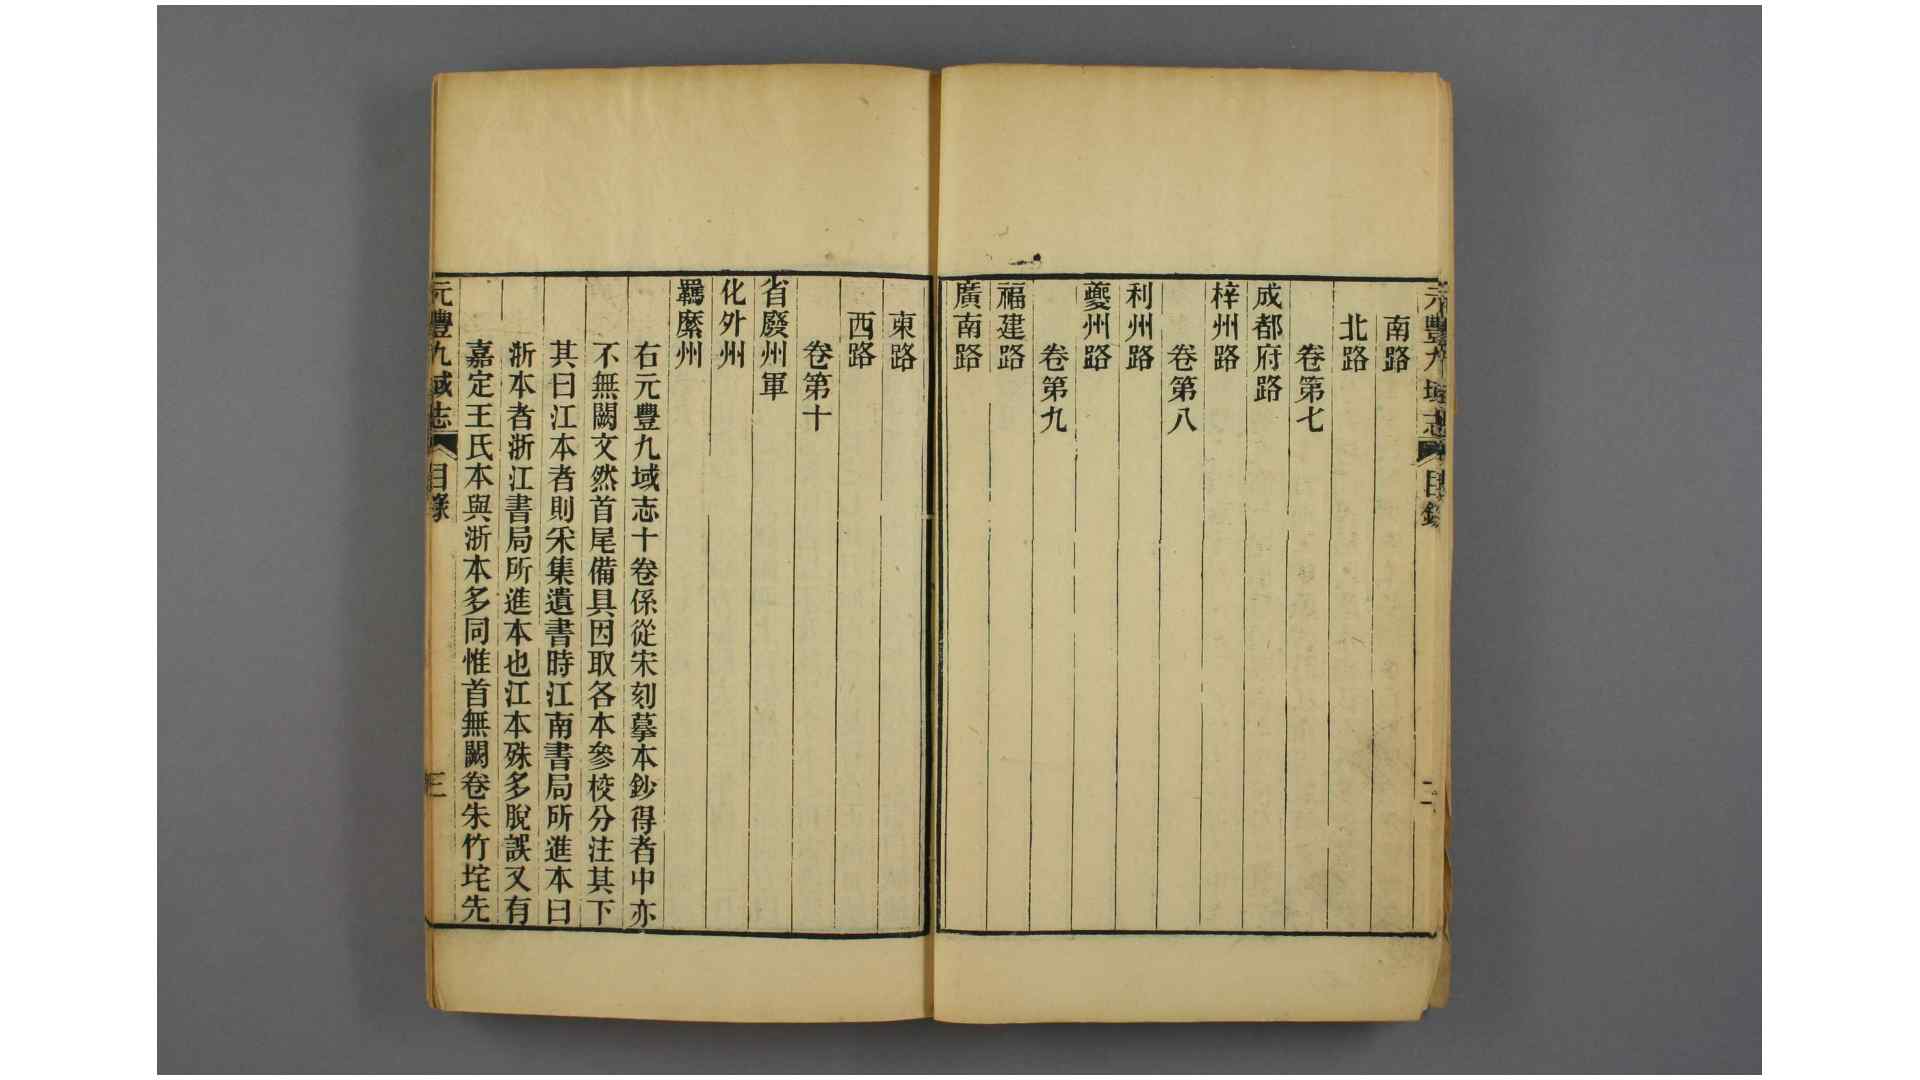 元豐九域志 目錄 二
南路
北路
卷第七
成都府路
梓州路
卷第八
利州路
夔州路
卷第九
福建路
廣南路
東路
西路
卷第十
省廢州軍
化外州
羈縻州
右元豐九域志十卷係從宋刻摹本鈔得者中亦
不無闕文然首尾備具因取各本參校分注其下
其曰江本者則采集遺書時江南書局所進本曰
浙本者浙江書局所進本也江本殊多脫誤又有
嘉定王氏本與浙本多同惟首無闕卷朱竹垞先
元豐九域志 目錄 三